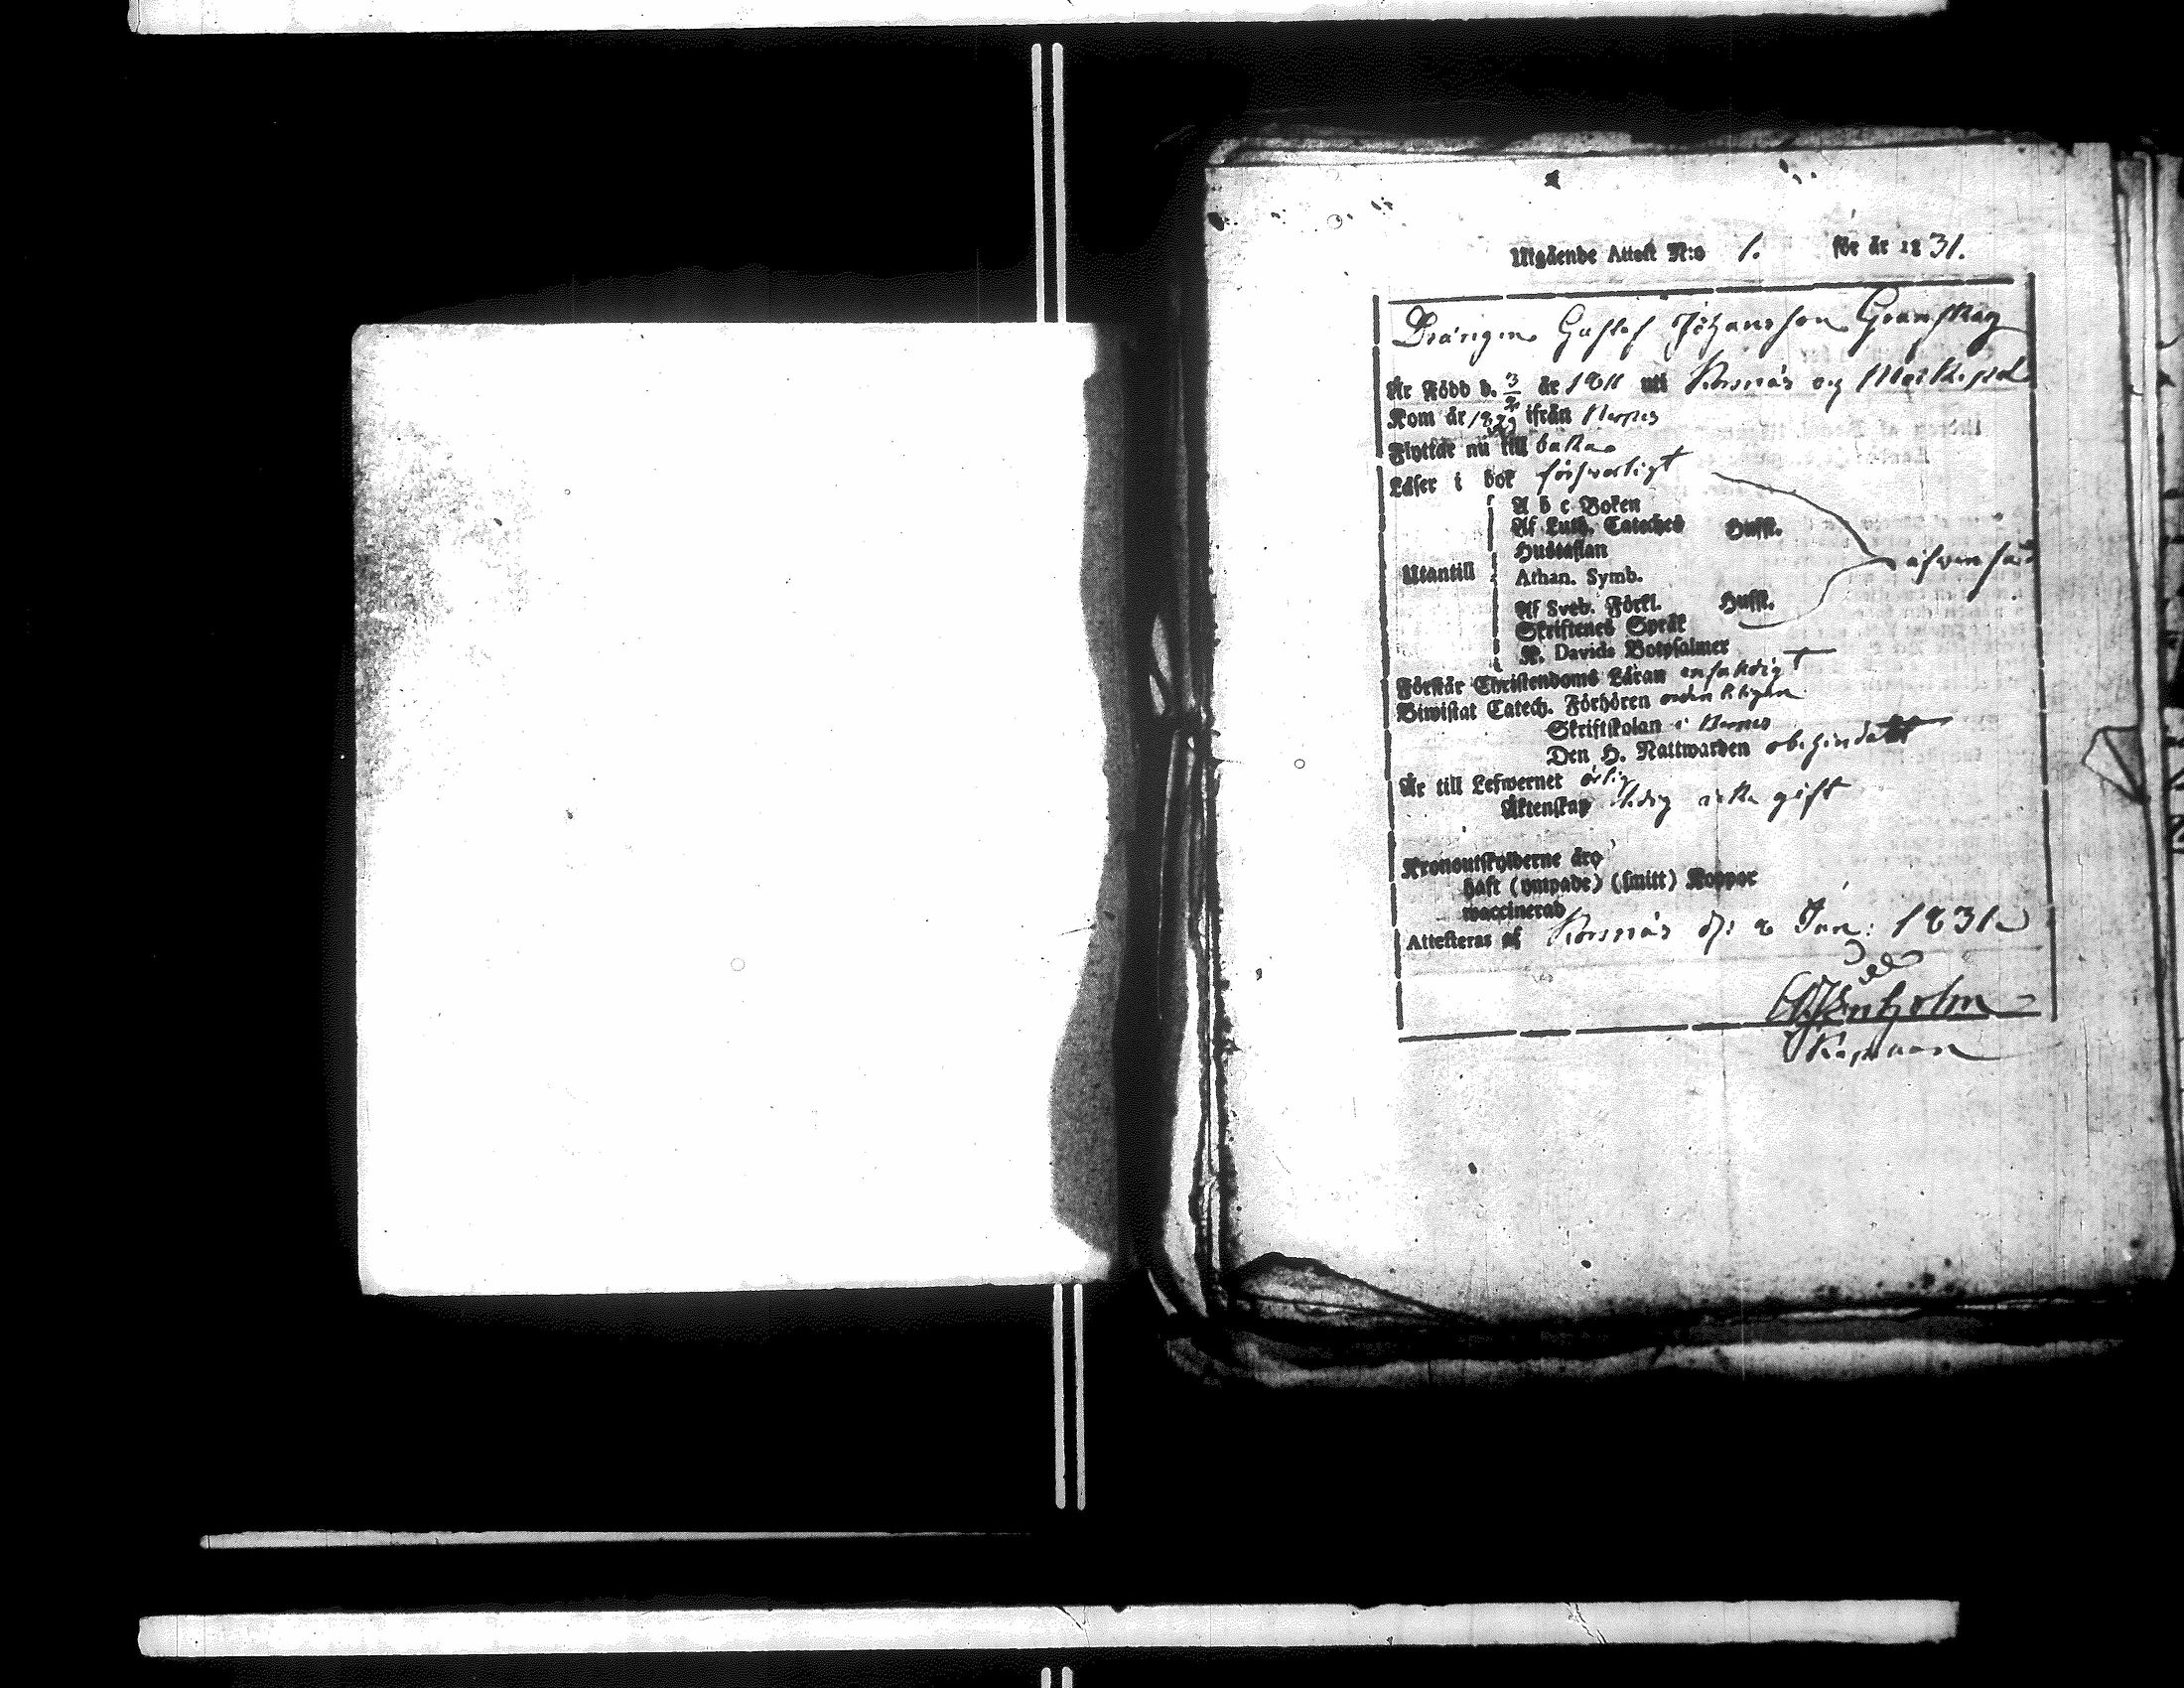 Utgående Attest N:o 1. för år 1831.
Drängen Gustaf Johansson
Är Född d. 3/2 år 1811 uti Korsnäs og
Kom år 1829 ifrån Nerpes
Flyttar nu till baka
Läser i bok försvarligt
A b c Boken
Af Luth. Cateches Hufst.
Hustaflan
Utantill Athan. Symb. äfvenså
Af Sveb. Förkl. Hufst.
Skriftenes Språk
K. Davids Botpsalmer
Förstår Christendoms Läran enfaldigt
Biwistat Catech. Förhören ordenteligen
Skriftskolan i Nerpes
Den H. Nattwarden obehindrat
Är till Lefwernet ärlig
Äktenskap ledig icke gift
Kronoutskylderne äro
haft (ympade) (smitt) Koppor
waccinerad
Attesteras af Korsnäs d. 2 Jan: 1831
Kapellan